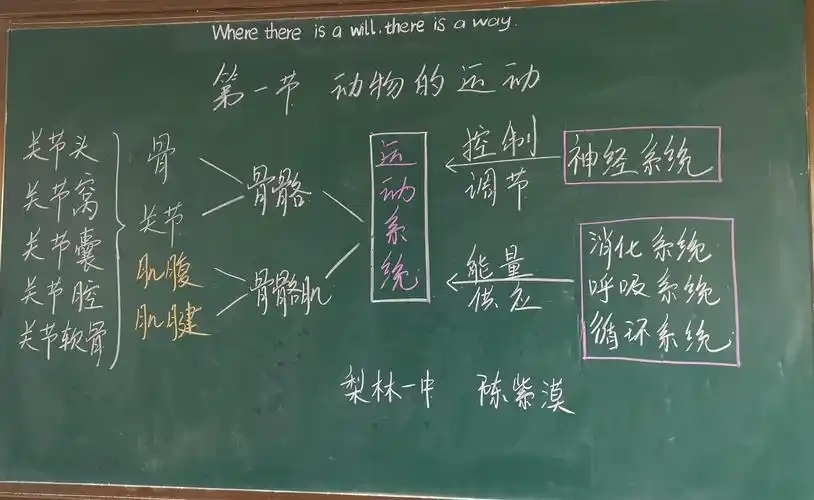 Where there is a will, there is a way.
第一节 动物的运动
关节头
关节窝
关节囊
关节腔
关节软骨
骨
关节
肌腹
肌腱
骨骼
骨骼肌
运动系统
控制
调节
神经系统
能量
供应
消化系统
呼吸系统
循环系统
梨林一中 陈紫漠